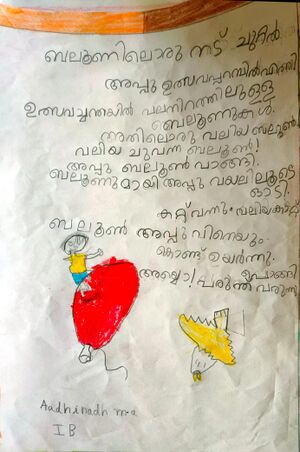 ബലൂണിലൊരു നട് ചുറ്റൽ
അപ്പു ഉത്സവപ്പറമ്പിൽ എത്തി
ഉത്സവച്ചന്തയിൽ പലനിറത്തിലുള്ള
ബെലൂണുകൾ.
അതിലൊരു വലിയ ബലൂൺ
വലിയ ചുവന്ന ബലൂൺ!
അപ്പു ബലൂൺ വാങ്ങി.
ബലൂണുമായി അപ്പു വയലിലൂടെ
ഓടി.
കറ്റ് വന്നു വലിയകാറ്റ്
ബലൂൺ അപ്പുവിനെയും.
കൊണ്ട് ഉയർന്നു.
പൊങ്ങി
അയ്യൊ! പരുന്ത് വരുന്നു
Aadhinadh m.a
I B